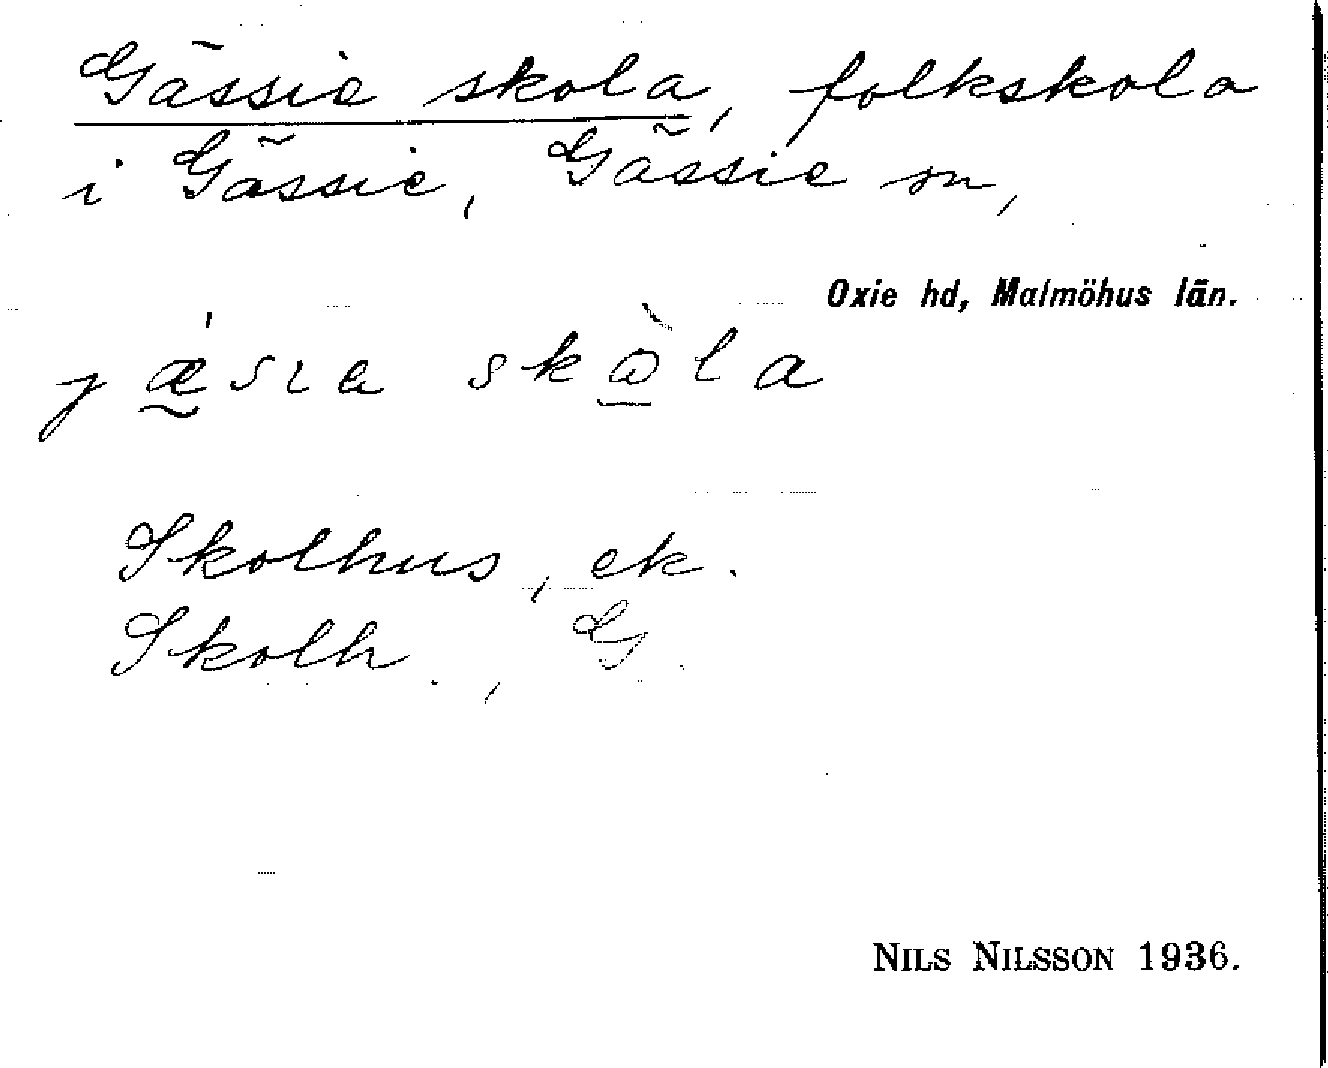 Gässie skola, folkskola
i Gässie, Gässie sn,
Oxie hd, Malmöhus län.
jǽ̰sɩa skὼ̱la
Skolhus, ek.
Skolh., G.
NILS NILSSON 1936.